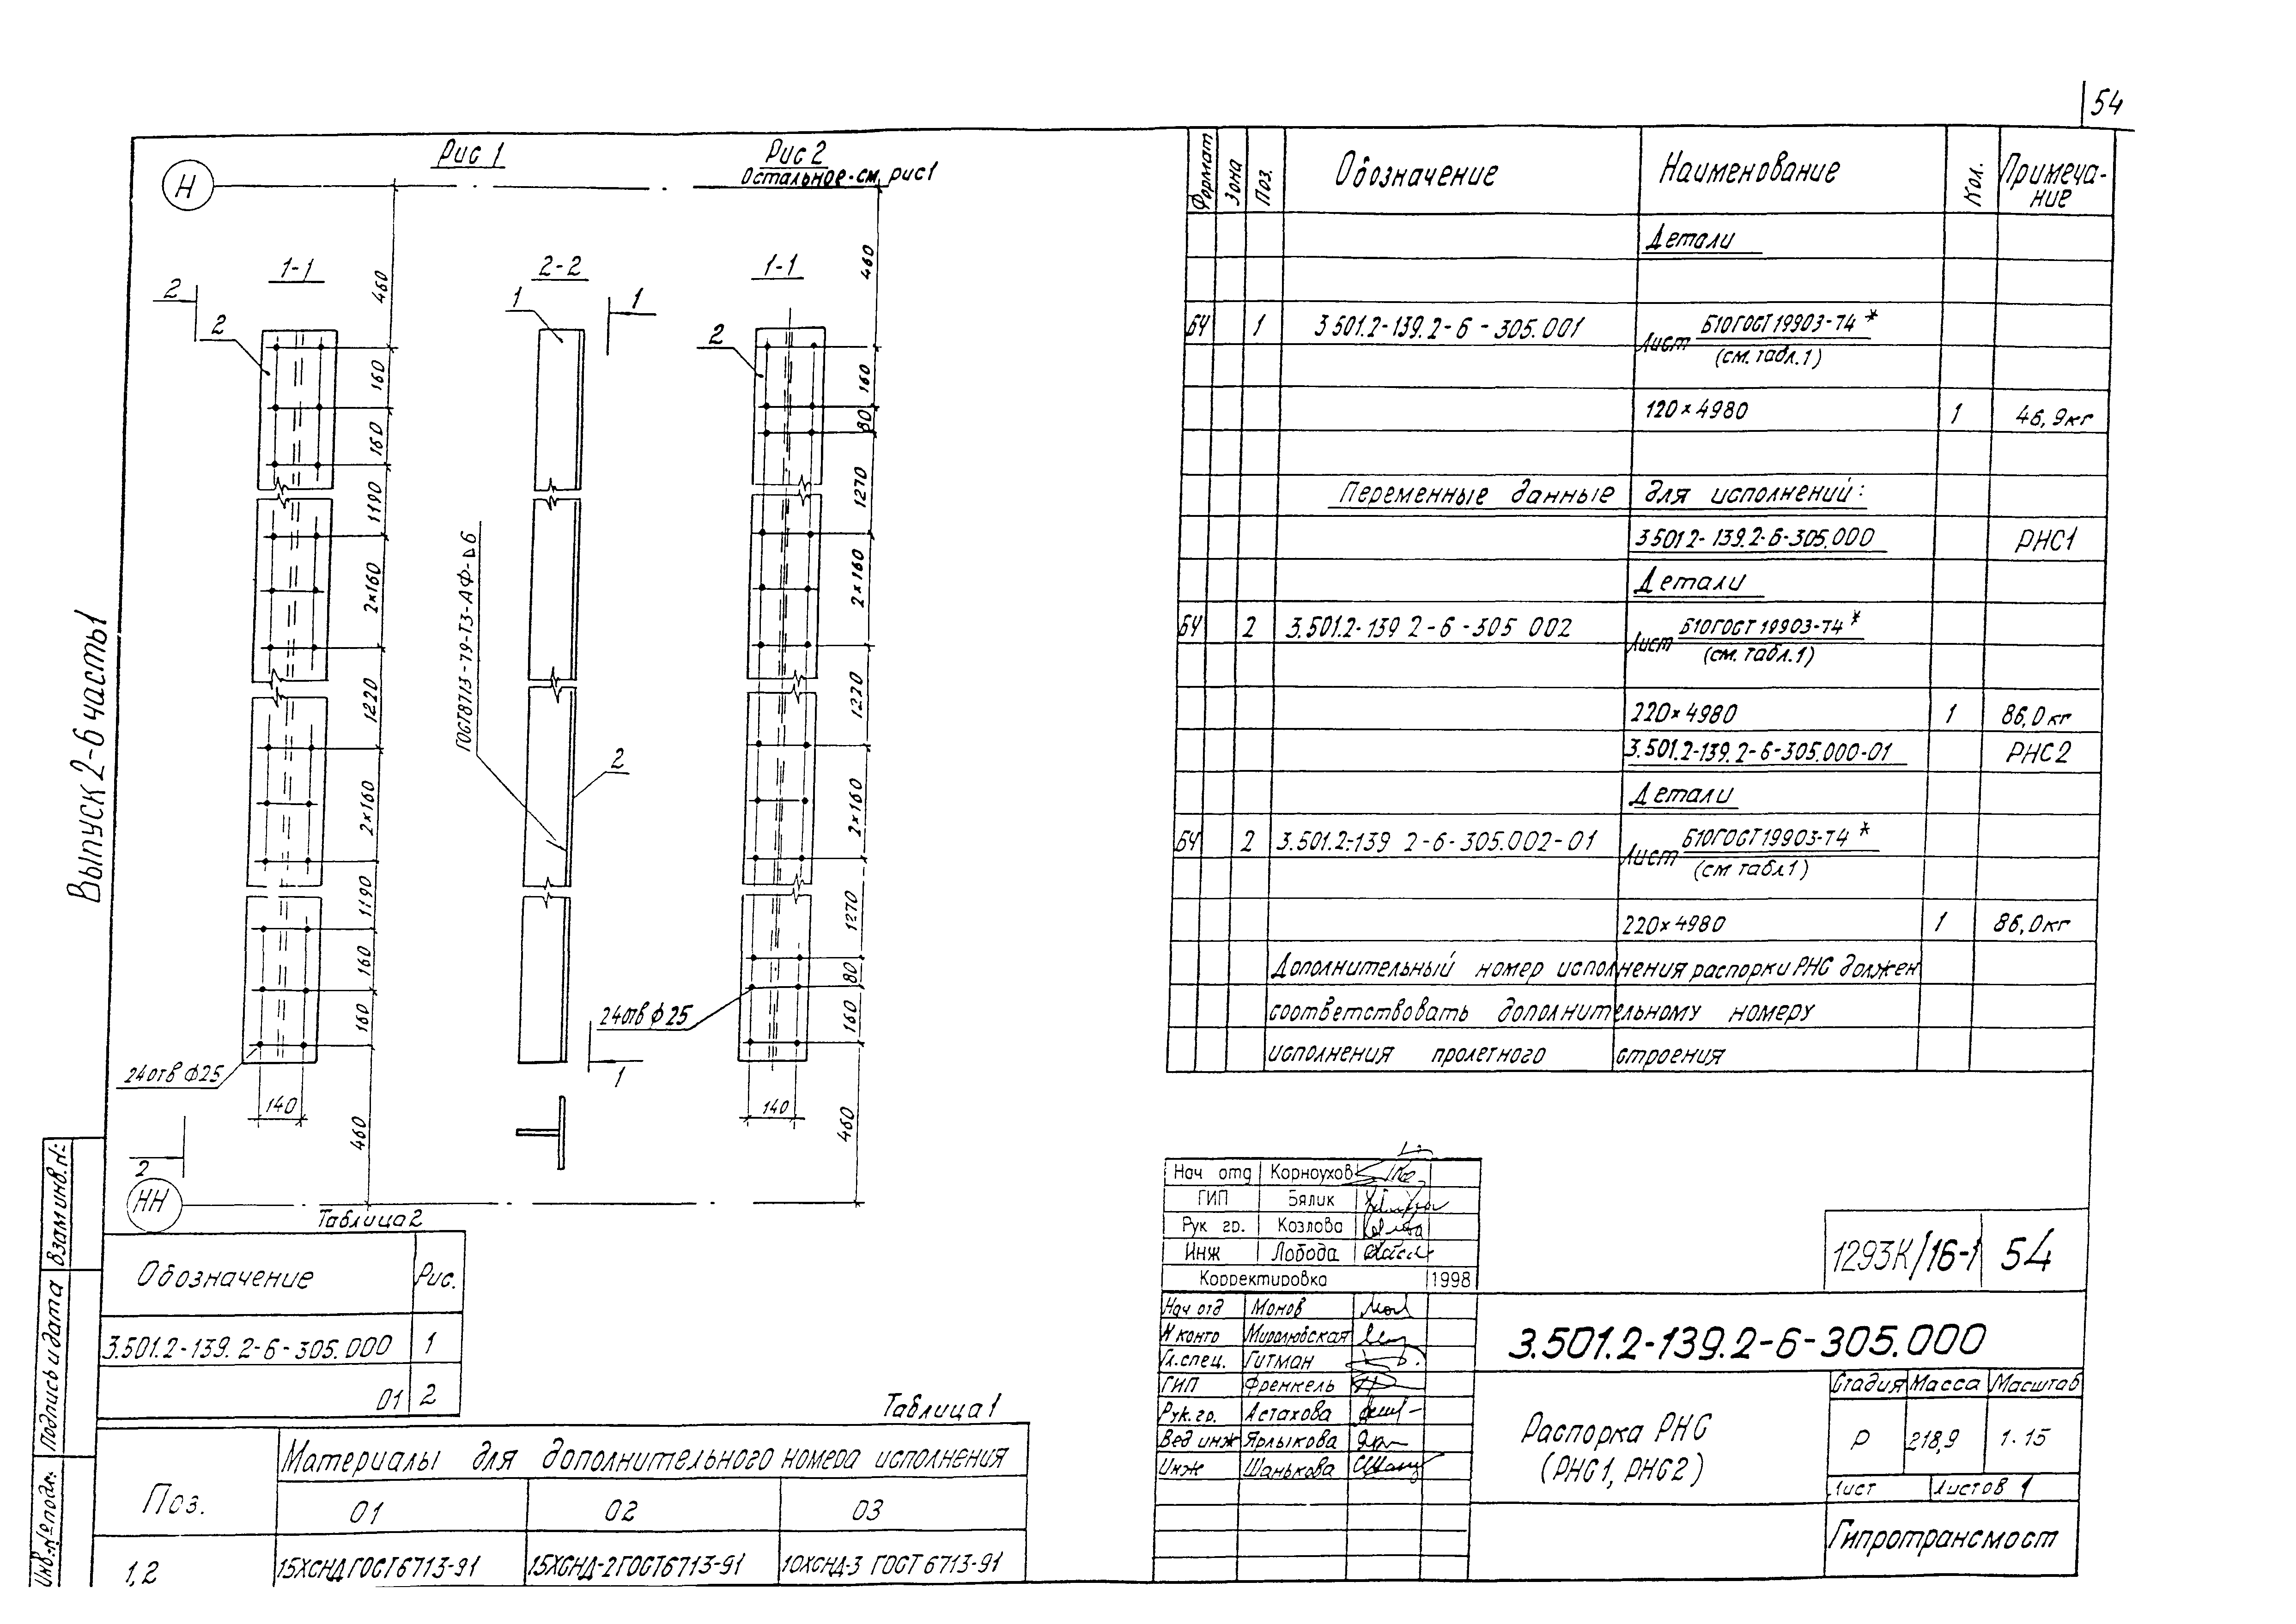 54
Выпуск 2-6 часть 1
Рис 1
Рис 2
Остальное-см. рис1
Н
1-1
2-2
1-1
2
2
1
1
2
460
160
160
1190
2×160
1220
2×160
1190
160
160
460
ГОСТ8713-79-Т3-АФ-⊿6
2
460
160
80
1270
2×160
1220
2×160
1270
80
160
460
24отв ф25
24отв ф25
140
140
1
2
НН
Таблица2
Обозначение Рис.
3.501.2-139.2-6-305.000 1
01 2
Таблица1
Поз. Материалы для дополнительного номера исполнения
01 02 03
1,2 15ХСНД ГОСТ6713-91 15ХСНД-2ГОСТ6713-91 10ХСНД-3 ГОСТ 6713-91
Взам инв. №
Подпись и дата
Инв. № подл.
Формат Зона Поз. Обозначение Наименование Кол. Примеча-
ние
Детали
БЧ 1 3.501.2-139.2-6-305.001 Лист Б10ГОСТ19903-74*
(см. табл.1)
120×4980 1 46,9кг
Переменные данные для исполнений:
3.501 2-139.2-6-305.000 РНС1
Детали
БЧ 2 3.501.2-139 2-6-305 002 Лист Б10ГОСТ 19903-74*
(см. табл.1)
220×4980 1 86,0кг
3.501.2-139.2-6-305.000-01 РНС2
Детали
БЧ 2 3.501.2-139 2-6-305.002-01 Лист Б10ГОСТ19903-74*
(см табл1)
220×4980 1 86,0кг
Дополнительный номер исполнения распорки РНС должен
соответствовать дополнительному номеру
исполнения пролетного строения
Нач отд Корноухов
ГИП Бялик
Рук гр. Козлова
Инж Лобода
Корректировка 1998
Нач отд Монов
Н контр Миролюбская
Гл.спец. Гитман
ГИП Френкель
Рук.гр. Астахова
Вед инж Ярлыкова
Инж Шанькова
1293К/16-1 54
3.501.2-139.2-6-305.000
Распорка РНС
(РНС1, РНС2)
Стадия Масса Масштаб
Р 218,9 1.15
Лист Листов 1
Гипротрансмост